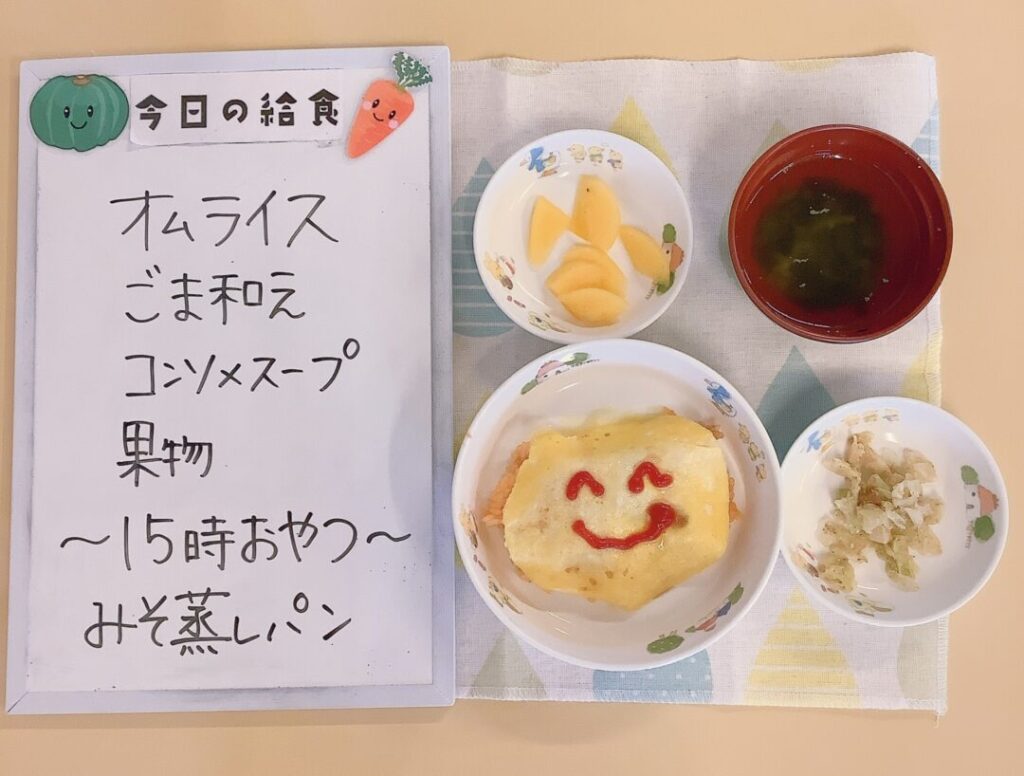 今日の給食
オムライス
ごま和え
コンソメスープ
果物
～15時おやつ～
みそ蒸しパン